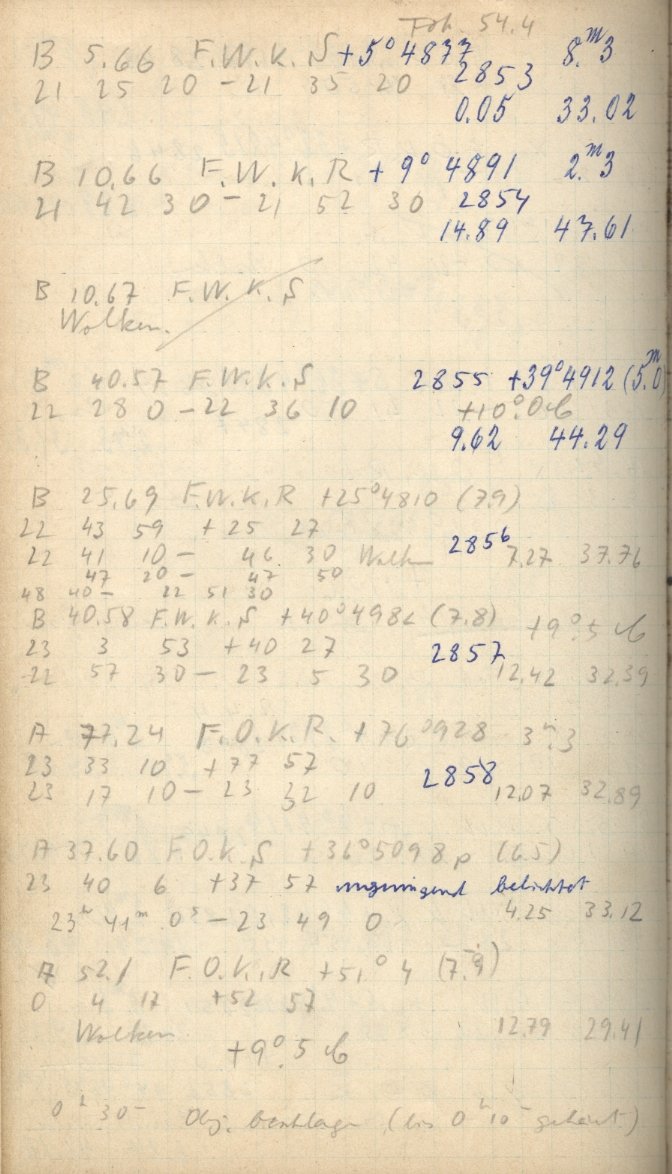 54.4
B 5.66 F.W.K.S +5° 4877 8.ᵐ3
21 25 20 – 21 35 20 2853
0.05 33.02
B 10.66 F.W.K.R + 9° 4891 2.ᵐ3
21 42 30 – 21 52 30 2854
14.89 47.61
B 10.67 F.W.K.S
Wolken.
B 40.57 F.W.K.S 2855 +39°4912 (5.ᵐ0
22 28 0 – 22 36 10 +10°.0
9.62 44.29
B 25.69 F.W.K.R +25°4810 (7.9)
22 43 59 +25 27
22 41 10 – 46 30 Wolken 2856 7.27 37.76
47 20 – 47 50
48 40 – 22 51 30
B 40.58 F.W.K.S +40°498 (7.8) +9°.5
23 3 53 +40 27 2857
22 57 30 – 23 5 30 12.42 32.39
A 77.24 F.O.K.R. +76°928
23 33 10 +77 57 2858
23 17 10 – 23 32 10 12.07 32.89
A 37.60 F.O.K.S +36°5098 p (6.5)
23 40 6 +37 57 ungenügend belichtet
23ʰ 41ᵐ 0ˢ – 23 49 0 4.25 33.12
A 52.1 F.O.K.R +51° 4
0 4 17 +52 57
Wolken 12.79 29.41
+9°.5
0ʰ 30ᵐ Obj. beschlagen (bis 0ʰ 10ᵐ